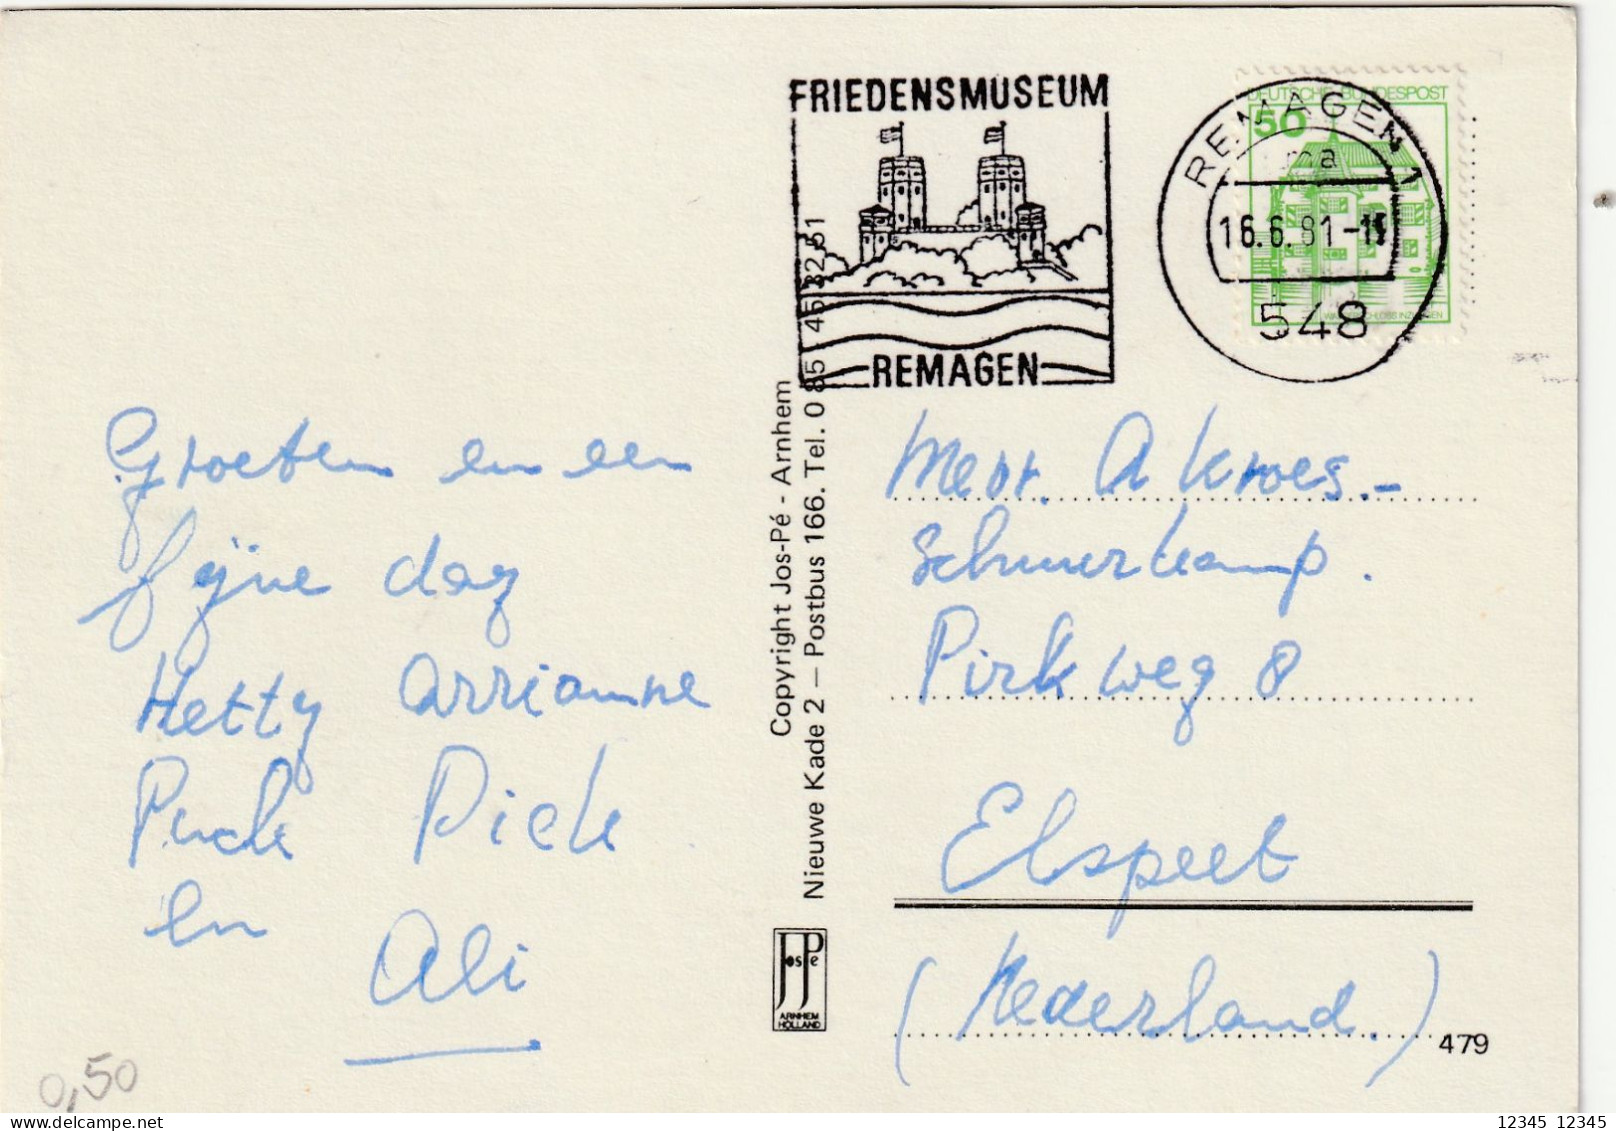 Groeten en een
fijne dag
Hetty Arrianne
Puck Dick
en
Ali
0,50
Copyright Jos-Pé - Arnhem
Nieuwe Kade 2 — Postbus 166. Tel. 0 85 45 32 51
JosPe
ARNHEM
HOLLAND
FRIEDENSMUSEUM
REMAGEN
DEUTSCHE BUNDESPOST
50
REMAGEN 1
ma
16.6.81-11
548
Mevr. A Kroes.-
Schuurkamp.
Pirkweg 8
Elspeet
(Nederland.)
479
12345 12345